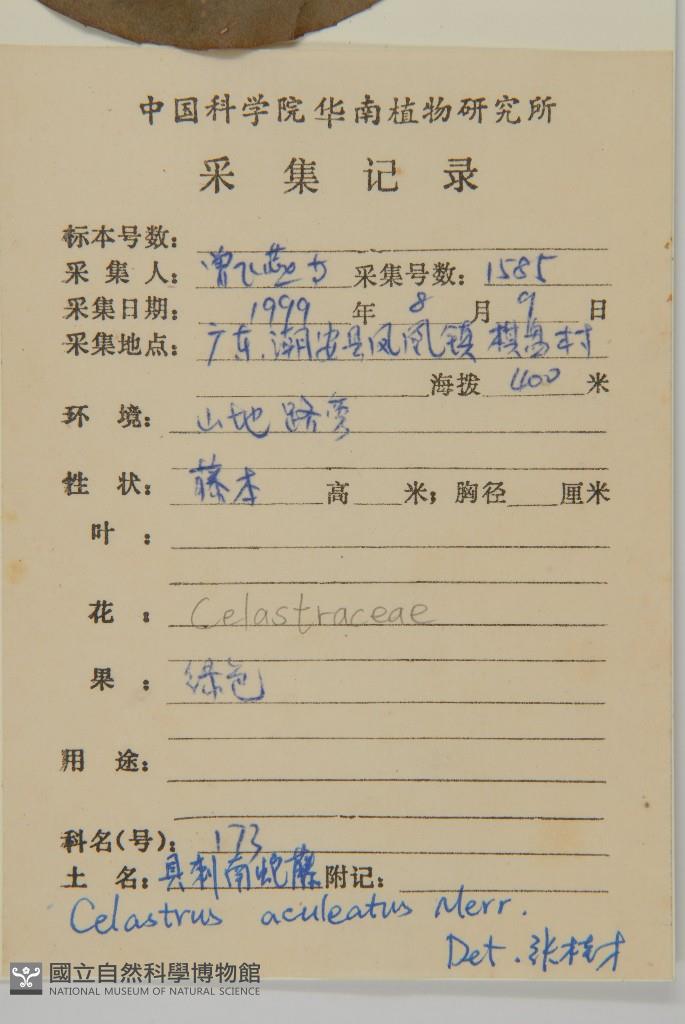 中国科学院华南植物研究所
采集记录
标本号数：
采集人：曾飞燕 采集号数：1585
采集日期：1999年8月9日
采集地点：广东.潮安县凤凰镇棋盘村
海拨 400 米
环境：山地路旁
性状：藤本 高 米；胸径 厘米
叶：
花：Celastraceae
果：绿色
用途：
科名(号)：173
土名：具刺南蛇藤 附记：
Celastrus aculeatus Merr.
Det. 张桂才
國立自然科學博物館
NATIONAL MUSEUM OF NATURAL SCIENCE